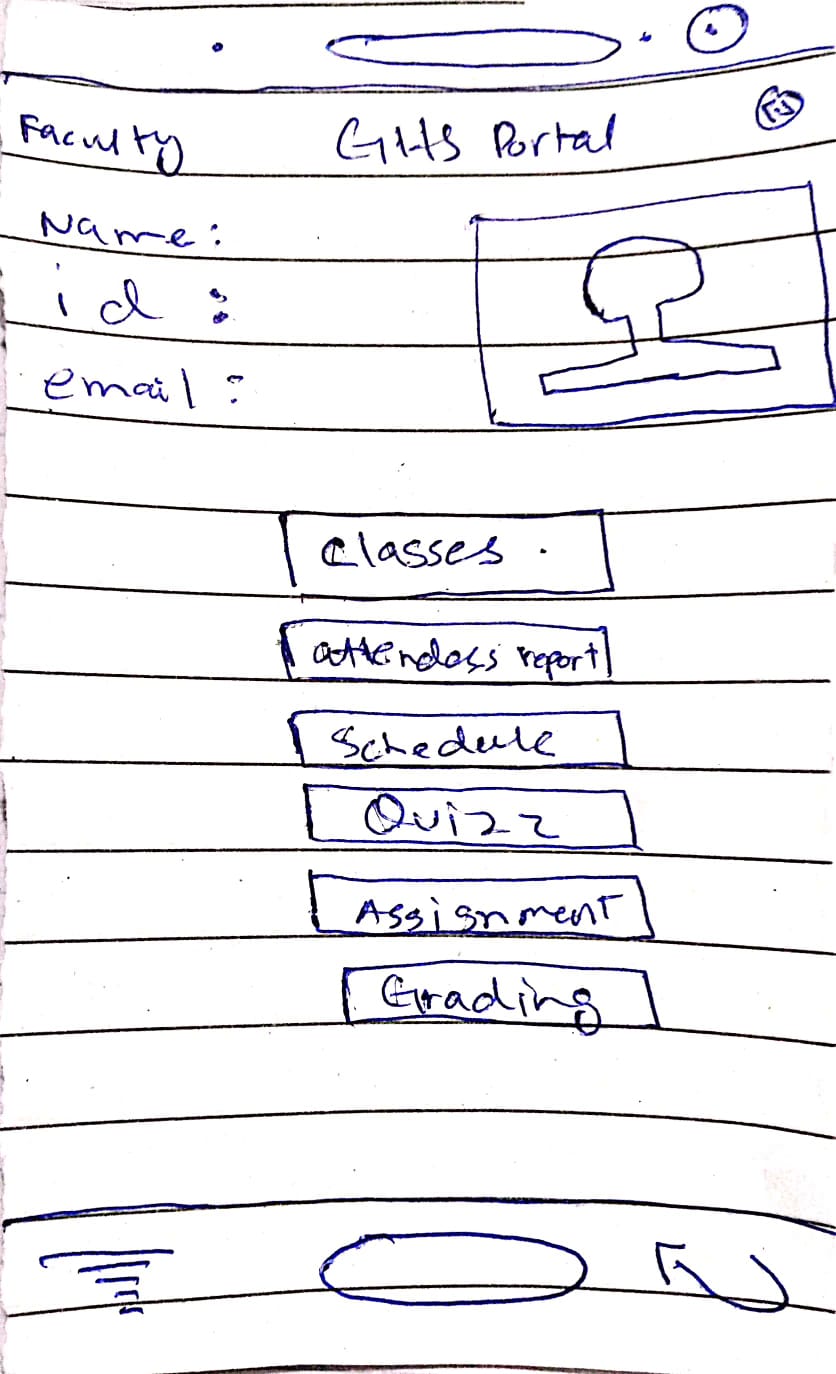 Faculty GHS Portal
Name:
id :
email :
Classes
attendass report
Schedule
Quizz
Assignment
Grading